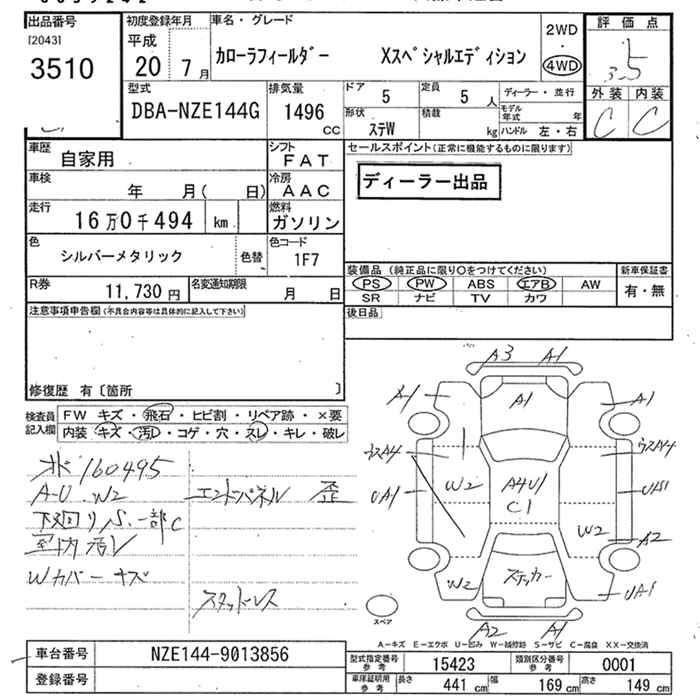 出品番号
[2043]
3510
初度登録年月
平成
20 7月
車名・グレード
カローラフィールダー Xスペシャルエディション
2WD
・
4WD
評価点
3.5
外装 内装
C C
型式
DBA-NZE144G
排気量
1496
CC
ドア
5
定員
5 人
形状
ステW
積載
kg
ディーラー・並行
モデル年式 年
ハンドル 左・右
車歴
自家用
シフト
FAT
車検
年 月( 日)
冷房
AAC
走行
16万0千494 km
燃料
ガソリン
色
シルバーメタリック
色替
色コード
1F7
R券
11,730 円
名変通知期限
月 日
セールスポイント(正常に機能するものに限ります)
ディーラー出品
装備品(純正品に限り○をつけてください)
PS PW ABS エアB AW
SR ナビ TV カワ
新車保証書
有・無
後日品
注意事項申告欄(不具合内容等は具体的に記入して下さい)
修復歴 有〔箇所 〕
検査員記入欄
FW キズ・飛石・ヒビ割・リペア跡・×要
内装・キズ・汚レ・コゲ・穴・スレ・キレ・破レ
160495
A-U.W2
エンドパネル 歪
下廻りS.一部C
室内汚レ
Wカバーキズ
スタッドレス
A3 A1
A1 A1 A1
ウスA4 ウスA4
W2 A4U1
C1
UA1 US1
W2 A2
W2 ステッカー UA1
スペア
A2 A1
A-キズ E-エクボ U-凹み W-補修跡 S-サビ C-腐食 XX-交換済
車台番号
NZE144-9013856
登録番号
型式指定番号
参考
15423
類別区分番号
参考
0001
車庫証明用
参考
長さ 441 cm 幅 169 cm 高さ 149 cm